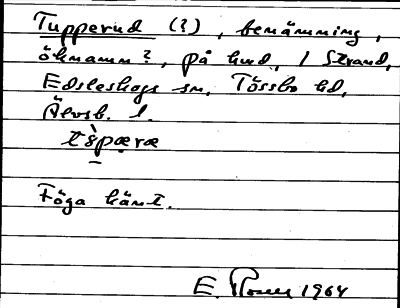 Tupperud (?), benämning,
öknamn?, på hund, i Strand,
Edsleskogs sn, Tössbo hd,
Älvsb. l.
Föga känt.
E. 1964